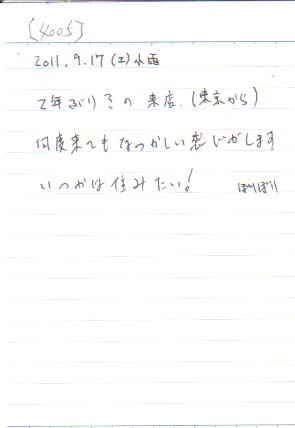 [4005]
2011.9.17(土)小雨
2年ぶりその来店.(東京から)
何度来てもなつかしい感じがします
いつかは住みたい!
ぽりぽり